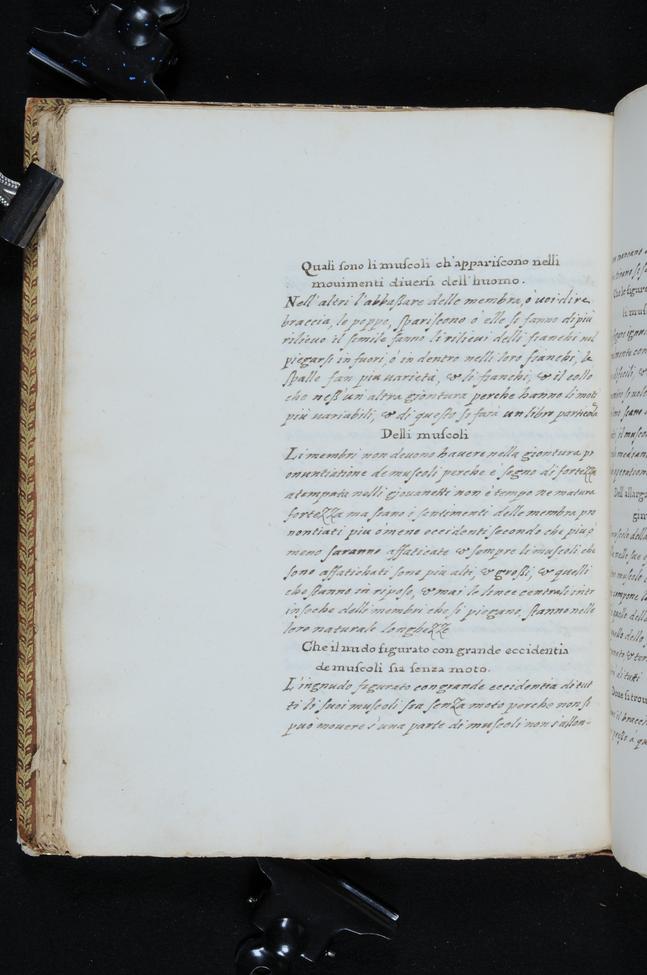 Quali sono li muscoli ch'appariscono nelli
mouimenti diuersi dell'huomo.
Nell'altri l'abbassare delle membra, o uoi dire
braccia, le poppe, spariscono o elle si fanno di piu
rilieuo il simile fanno li rilieui delli fianchi nel
piegarsi in fuori, ò in dentro nelli loro fianchi, le
spalle fan piu uarietà, & li fianchi, & il collo
che ness'un'altra giontura perche hanno li moti
piu uariabili, & di questo si farà un libro particola
Delli muscoli
Li membri non deuono hauere nella giontura pr
onuntiatione de muscoli perche è segno di fortezza
atempata nelli giouanetti non è tempo ne matura
fortezza ma siano i sentimenti delle membra pro
nontiati piu ò meno euidenti secondo che piu ò
meno saranno affaticate & sempre li muscoli che
sono affatichati sono piu alti, & grossi, & quelli
che stanno in riposo, & mai le linee centrali intr
inseche delli membri che si piegano stanno nelle
loro naturale longhezze
Che il nudo figurato con grande eccidentia
de muscoli sia senza moto.
L'ingnudo figurato con grande eccidentia di tut
ti li suoi muscoli sia senza moto perche non si
può mouere s'una parte di muscoli non s'allon-